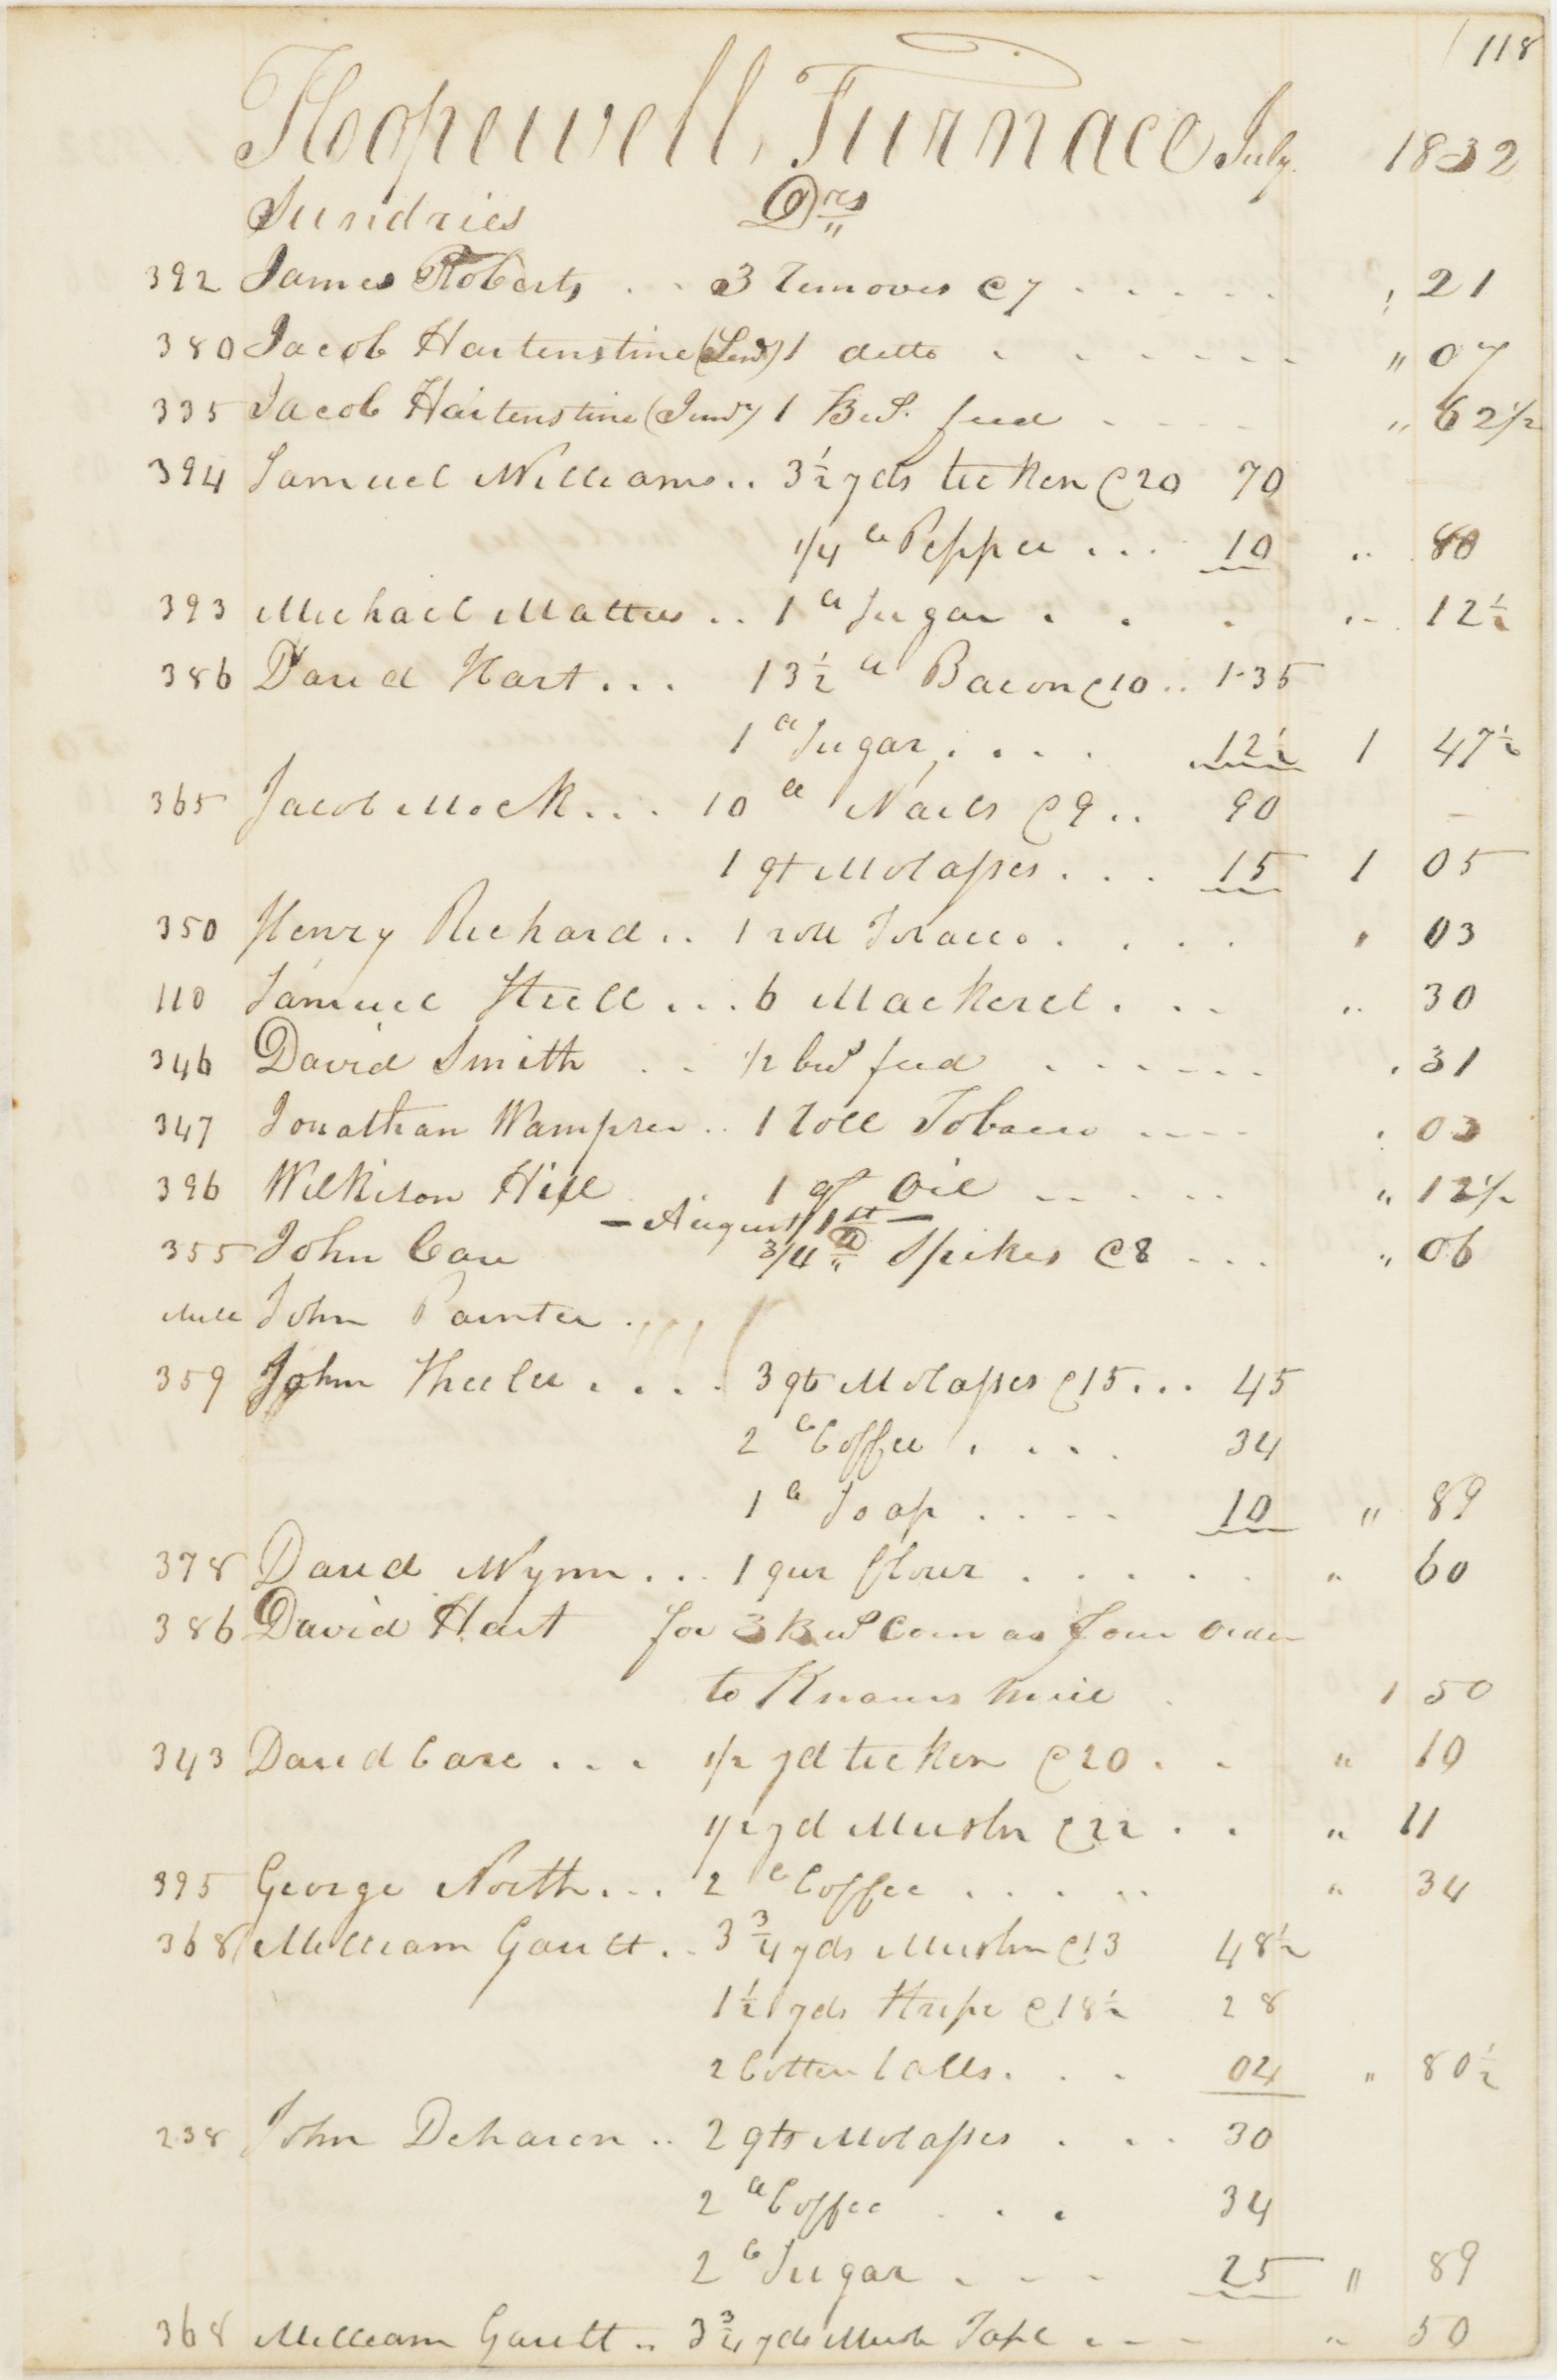 118
Hopewell Furnace July 1832
Sundries Drs
392 James Roberts . . 3 removes @ 7 . . . . . , 21
380 Jacob Hartenstine (Senr) 1 ditto . . . . . . " 07
335 Jacob Hartenstine (Junr) 1 Bus. feed . . . . " 62 1/2
394 Samuel Williams .. 3 1/2 yds ticken @ 20 70
1/4 lb Pepper . . . 10 .. 80
393 Michael Mattus .. 1 lb Sugar . . . .. 12 1/2
386 David Hart . . . 13 1/2 lb Bacon @ 10 .. 1.35
1 lb Sugar . . . . 12 1/2 1 47 1/2
365 Jacob Mock . . . 10 lb Nails @ 9 .. 90
1 qt Molasses . . . 15 1 05
350 Henry Richard .. 1 roll Tobacco . . . . , 03
110 Samuel Steell . . . 6 Mackerel . . . .. 30
346 David Smith . . 1/2 bus feed . . . . . . . 31
347 Jonathan Wampser .. 1 roll Tobacco . . . . . 03
396 Wilkison Hill . . 1 qt Oil . . . . . " 12 1/2
- August 1st -
355 John Care 3/4 lb Spikes @ 8 . . . " 06
Mill John Painter .
359 John Sheeler . . . . 3 qts Molasses @ 15 . . . 45
2 lb Coffee . . . . 34
1 lb Soap . . . . 10 " 89
378 David Wynn . . . 1 qur flour . . . . . " 60
386 David Hart for 3 Bus Corn as per order
to Knauers 1 50
343 David Care . . . 1/2 yd ticken @ 20 . . " 10
1/2 yd Muslin @ 22 . . " 11
395 George North . . . 2 lb Coffee . . . . . " 34
368 William Gault . . 3 3/4 yds Muslin @ 13 48 1/2
1 1/2 yds Stripe @ 18 1/2 28
2 Cotten balls . . . 04 " 80 1/2
238 John Deharen .. 2 qts Molasses . . . 30
2 lb Coffee . . . 34
2 lb Sugar . . . 25 " 89
368 William Gault .. 3 3/4 yds Tape . . . " 50